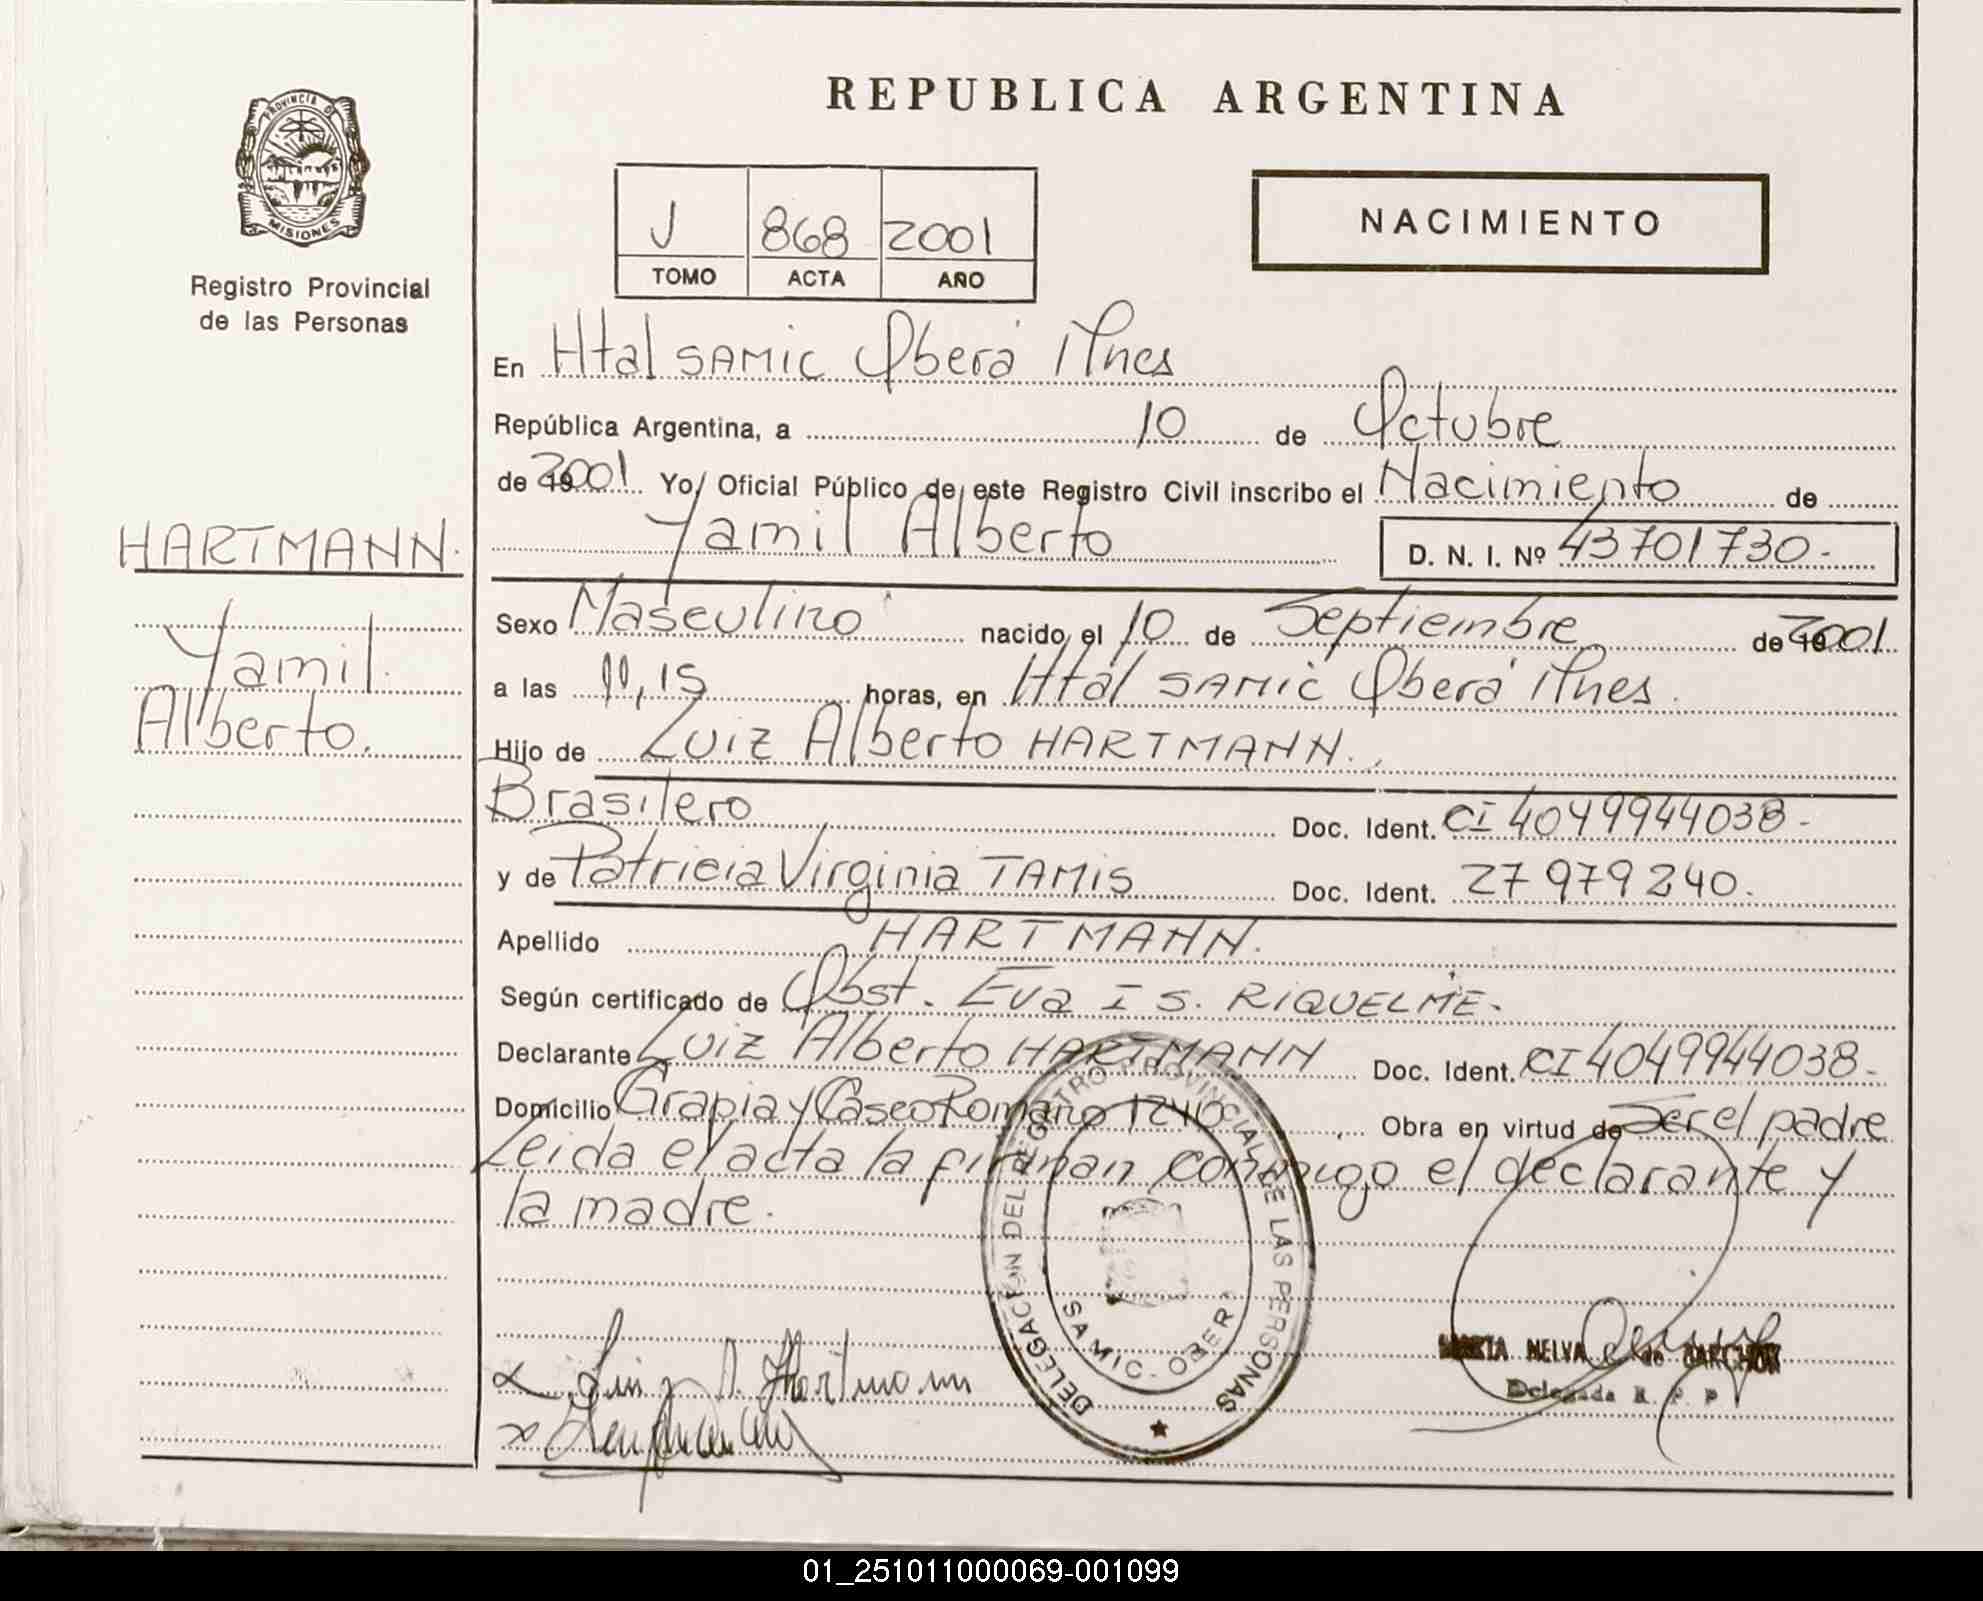 REPUBLICA ARGENTINA
PROVINCIA DE
MISIONES
Registro Provincial
de las Personas
J 868 2001
TOMO ACTA AÑO
NACIMIENTO
En Htal SAMIC Oberá Mnes
República Argentina, a 10 de Octubre
de 2001 Yo, Oficial Público de este Registro Civil inscribo el Nacimiento de
Yamil Alberto D. N. I. Nº 43701730.-
HARTMANN.
Yamil
Alberto.
Sexo Masculino nacido el 10 de Septiembre de 2001
a las 11,15 horas, en Htal SAMIC Oberá Mnes.
Hijo de Luiz Alberto HARTMANN.
Brasilero Doc. Ident. CI 4049944038-
y de Patricia Virginia TAMIS Doc. Ident. 27979240.
Apellido HARTMANN.
Según certificado de Obst. Eva I S. RIQUELME.
Declarante Luiz Alberto HARTMANN Doc. Ident. CI 4049944038-
Domicilio Grapia y Caseo Romano 1240 Obra en virtud de Ser el padre
Leida el acta la firman conmigo el declarante y
la madre.
DELEGACION DEL REGISTRO PROVINCIAL DE LAS PERSONAS
SAMIC - OBERA
x Luiz A. Hartmann
x
NELVA de
Delegada R. P. P
01_251011000069-001099